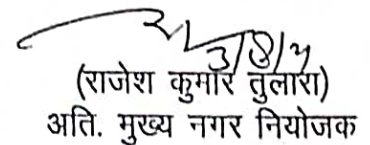 3/8/21
(राजेश कुमार तुलारा)
अति. मुख्य नगर नियोजक